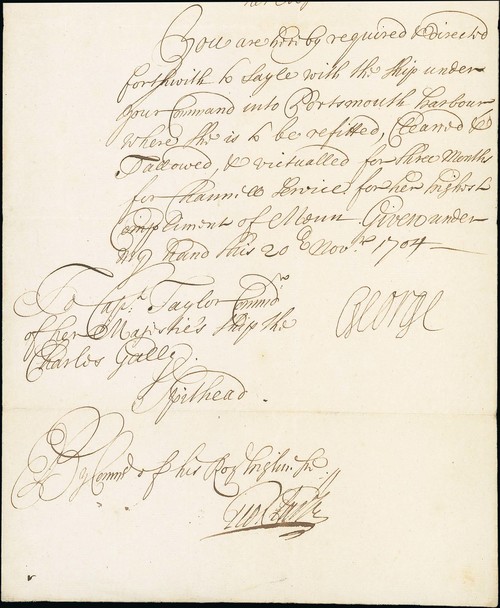 You are hereby required & directed
forthwith to Sayle with the Ship under
your Command into Portsmouth Harbour
where she is to be refitted, Cleaned &
Tallowed, & victualled for three Months
for Channell Service for her highest
Compliment of Menn Given under
my hand this 20th Novr. 1704
George
To Capt. Taylor Commdr
of her Majesties Ship the
Charles Gally.
Spithead.
By Commd of his Roy Highn.